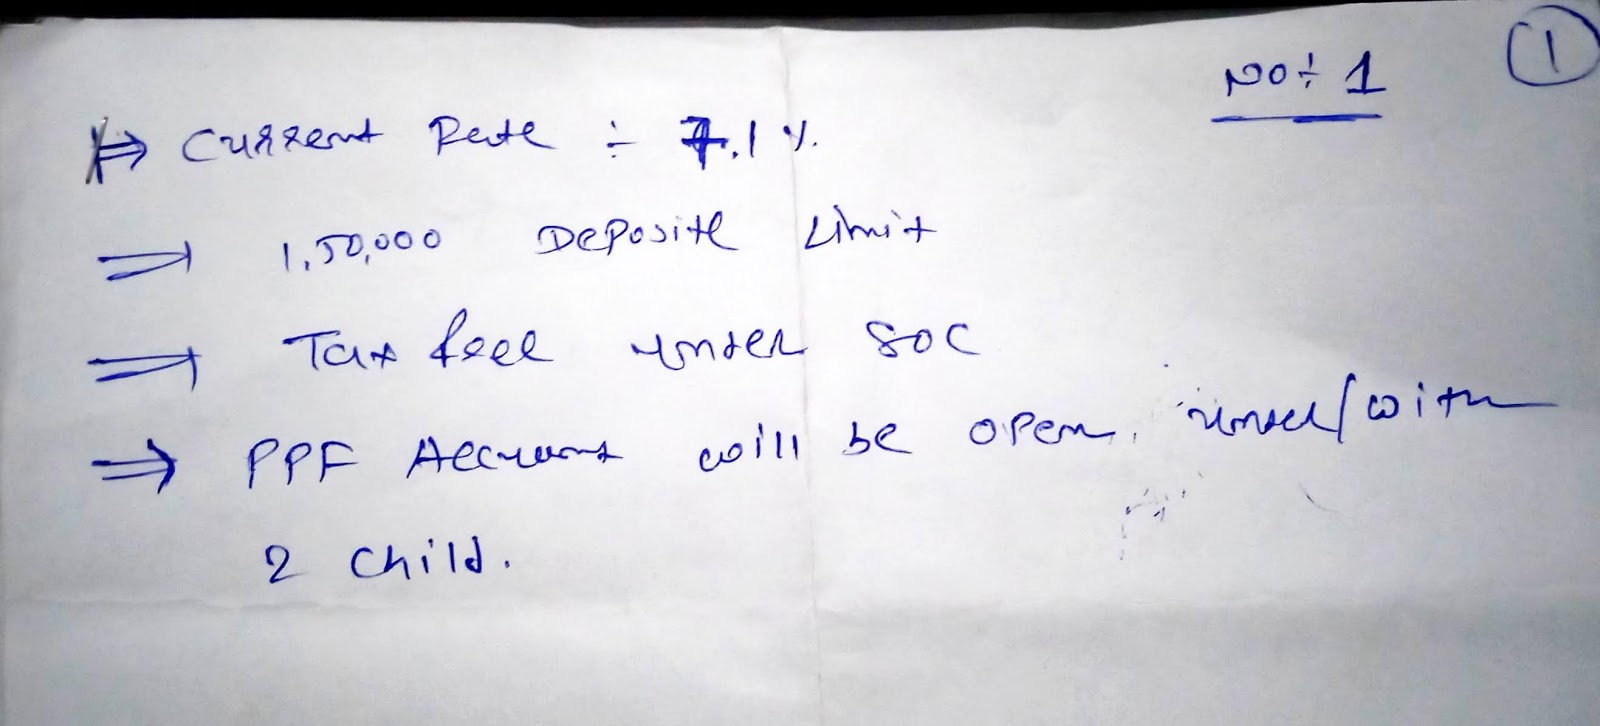 1
NO÷ 1
⇒ Current Rate ÷ 7.1%.
⇒ 1,50,000 Deposite Limit
⇒ Tax free under 80C
⇒ PPF Account will be open, under/with
2 child.